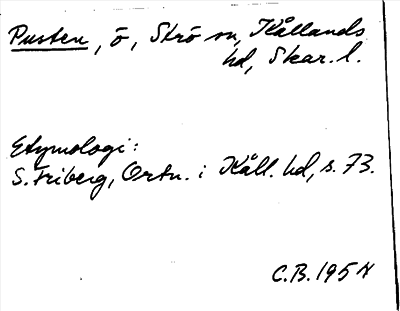 Pusten, ö, Strö sn, Kållands
hd, Skar. l.
Etymologi:
S. Friberg, Ortn. i Kåll. hd, s. 73.
C.B. 1954